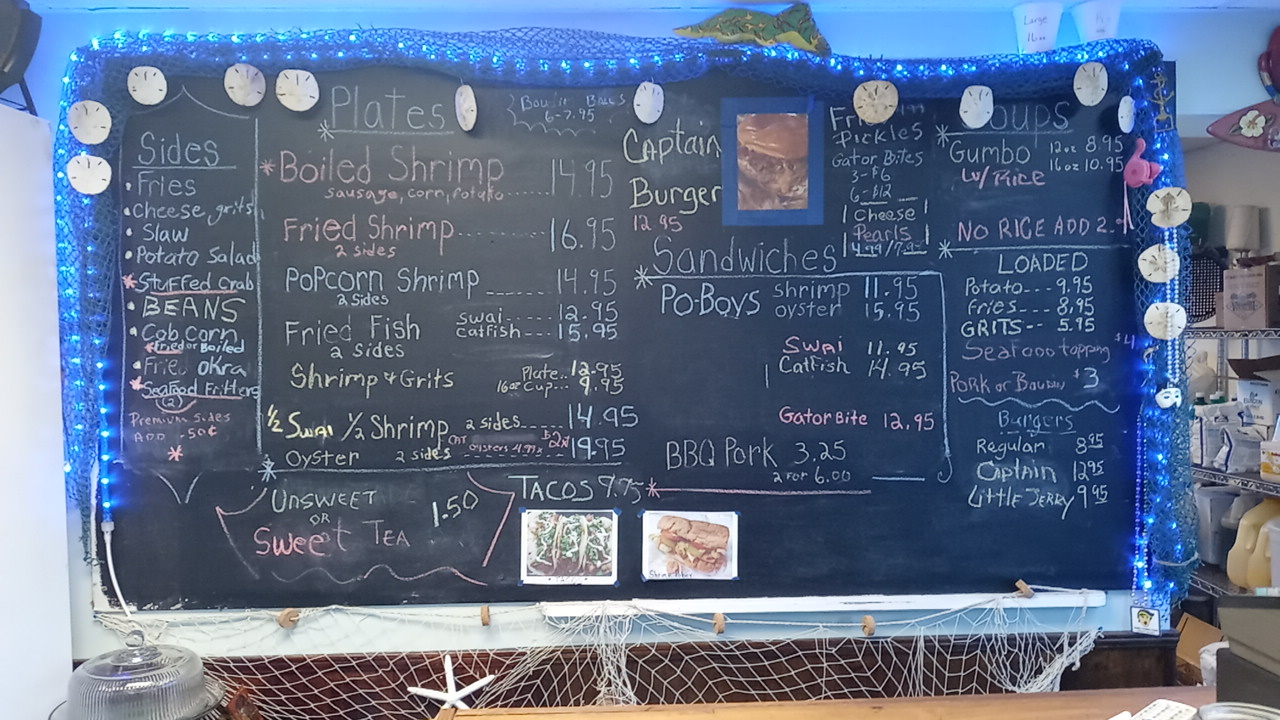 Large
16oz
Sides
• Fries
• Cheese grits
• Slaw
• Potato Salad
* Stuffed Crab
• BEANS
• Cob Corn
* Fried or Boiled
• Fried Okra
* Seafood Fritters
(2)
Premium Sides
ADD .50¢
*
* Plates
Boudin Balls
6-7.95
* Boiled Shrimp 14.95
sausage, corn, potato
Fried Shrimp 16.95
2 sides
Popcorn Shrimp 14.95
2 sides
Fried Fish Swai 12.95
Catfish 15.95
2 sides
Shrimp & Grits Plate 12.95
16oz Cup 9.95
1/2 Swai 1/2 Shrimp 2 sides 14.95
Oyster 2 sides 19.95
*
UNSWEET
OR
Sweet TEA
1.50
TACOS 9.75 *
Captain
Burger
12.95
Pickles
Gator Bites
3-$6
6-$12
Cheese
Pearls
* Sandwiches
PO-BOYS shrimp 11.95
oyster 15.95
Swai 11.95
Catfish 14.95
Gator Bite 12.95
BBQ Pork 3.25
2 FOR 6.00
* oups
Gumbo 12oz 8.95
16oz 10.95
W/ RICE
NO RICE ADD 2.
*
LOADED
Potato--- 9.95
Fries--- 8.95
GRITS-- 5.95
Seafood topping $4
PORK or Boudin $3
Burgers
Regular 8.95
Captain 12.95
Little Jerry 9.95